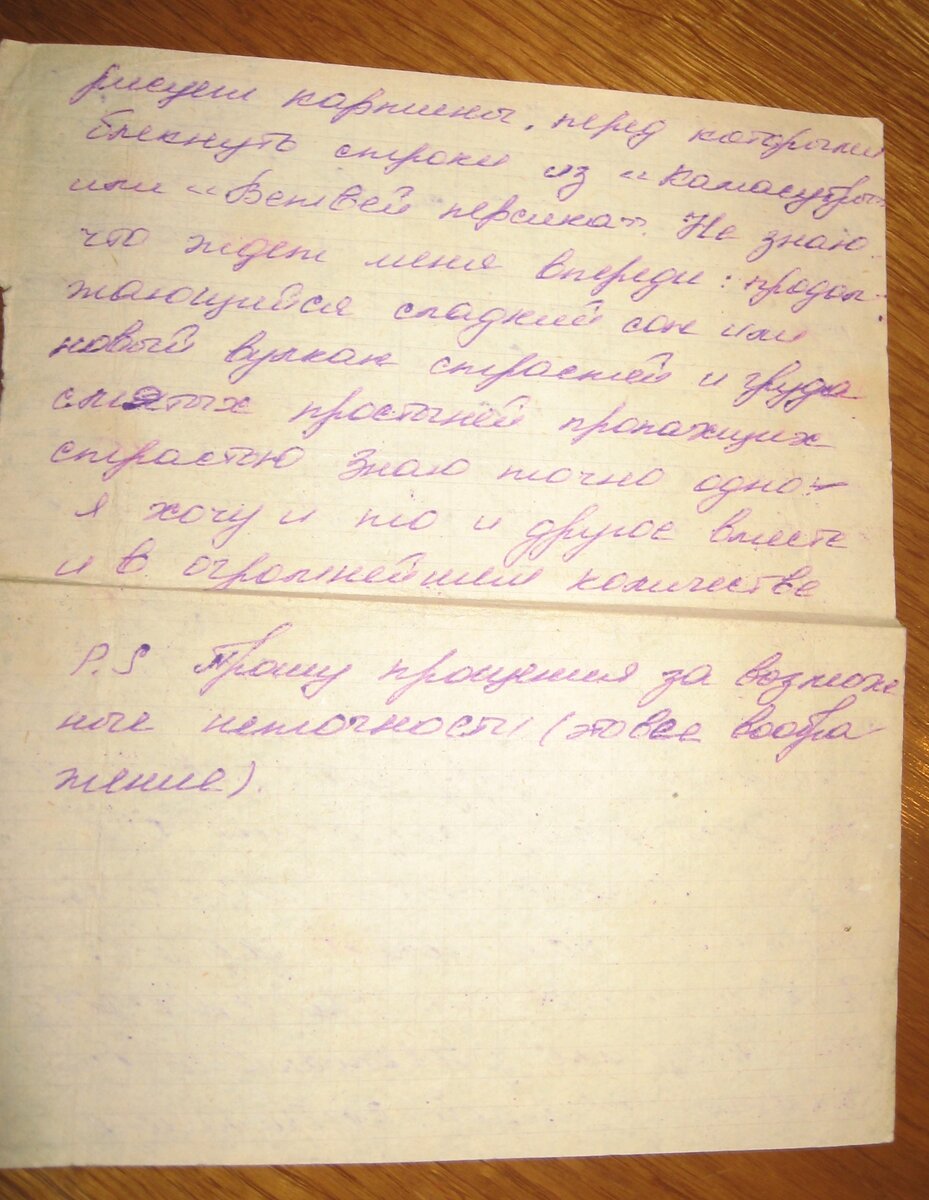 рисует картины, перед которыми
блекнуть строки из «Камасутры»
или «Ветвей персика». Не знаю
что ждет меня впереди: продол-
жающийся сладкий сон или
новый вулкан страстей и груда
смятых простыней пропахших
страстью Знаю точно одно -
я хочу и то и другое вместе
и в огромнейшем количестве
P.S Прошу прощения за возмож
ные неточности (это все вообра-
жение).